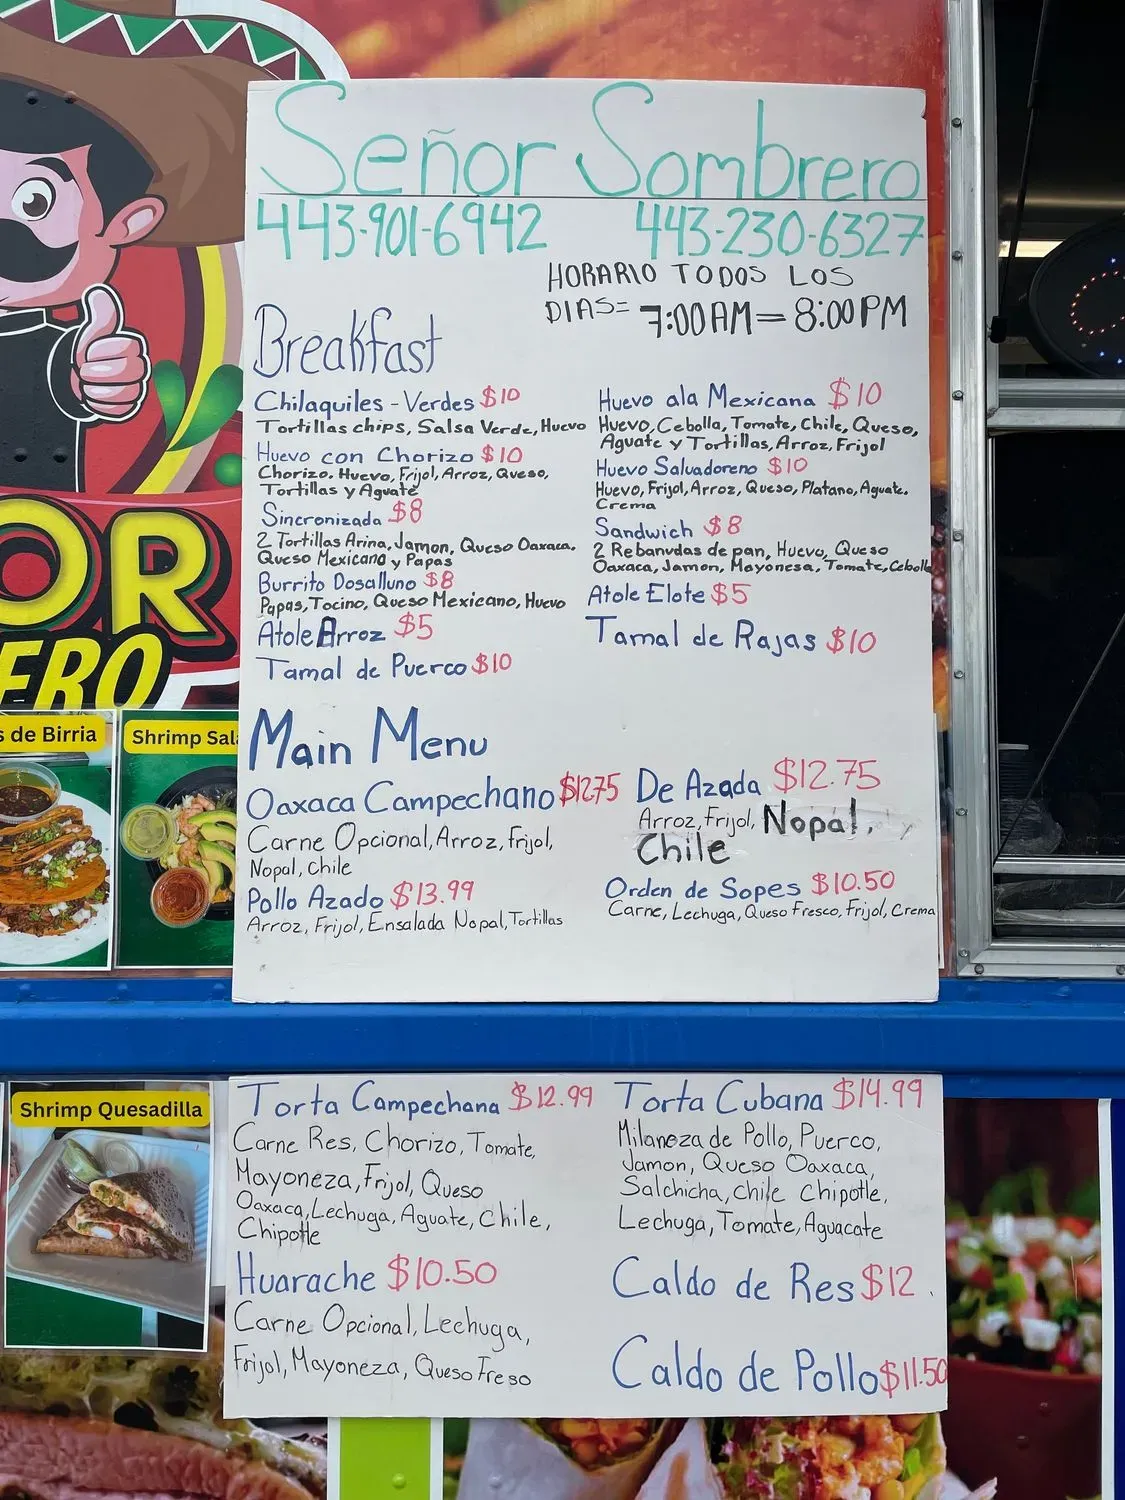 Señor Sombrero
443-901-6942 443-230-6327
HORARIO TODOS LOS
DIAS= 7:00AM=8:00PM
Breakfast
Chilaquiles-Verdes $10
Tortillas chips, Salsa Verde, Huevo
Huevo con Chorizo $10
Chorizo. Huevo, Frijol, Arroz, Queso,
Tortillas y Aguate
Sincronizada $8
2 Tortillas Arina, Jamon, Queso Oaxaca.
Queso Mexicano y Papas
Burrito Dosalluno $8
Papas, Tocino, Queso Mexicano, Huevo
Atole Arroz $5
Tamal de Puerco $10
Huevo ala Mexicana $10
Huevo, Cebolla, Tomate, Chile, Queso,
Aguate y Tortillas, Arroz, Frijol
Huevo Salvadoreno $10
Huevo, Frijol, Arroz, Queso, Platano, Aguate.
Crema
Sandwich $8
2 Rebanvdas de pan, Huevo, Queso
Oaxaca, Jamon, Mayonesa, Tomate, Cebolla
Atole Elote $5
Tamal de Rajas $10
Main Menu
Oaxaca Campechano $12.75
Carne Opcional, Arroz, Frijol,
Nopal, Chile
Pollo Azado $13.99
Arroz, Frijol, Ensalada Nopal, Tortillas
De Azada $12.75
Arroz, Frijol, Nopal,
Chile
Orden de Sopes $10.50
Carne, Lechuga, Queso Fresco, Frijol, Crema
Torta Campechana $12.99
Carne Res, Chorizo, Tomate,
Mayoneza, Frijol, Queso
Oaxaca, Lechuga, Aguate, Chile,
Chipotle
Huarache $10.50
Carne Opcional, Lechuga,
Frijol, Mayoneza, Queso Freso
Torta Cubana $14.99
Milaneza de Pollo, Puerco,
Jamon, Queso Oaxaca,
Salchicha, Chile Chipotle,
Lechuga, Tomate, Aguacate
Caldo de Res $12.
Caldo de Pollo $11.50
OR
ERO
s de Birria
Shrimp Sala
Shrimp Quesadilla